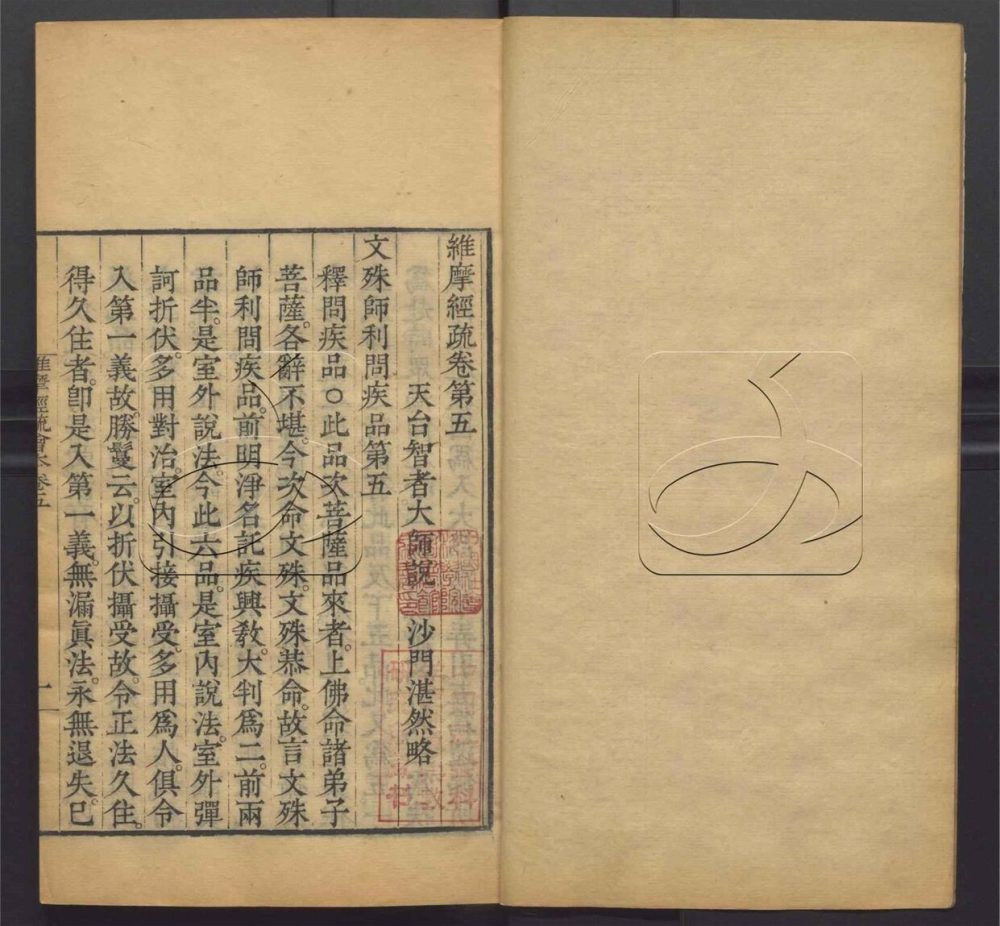 維摩經疏卷第五
天台智者大師說　沙門湛然略
文殊師利問疾品第五
釋問疾品○此品次菩薩品來者。上佛命諸弟子
菩薩各辭不堪。今次命文殊。文殊恭命。故言文殊
師利問疾品。前明淨名託疾興教。大判爲二。前兩
品半。是室外說法。今此六品。是室內說法。室外彈
訶折伏。多用對治。室內引接攝受。多用爲人。俱令
入第一義故。勝鬘云。以折伏攝受故。令正法久住。
得久住者。卽是入第一義。無漏眞法。永無退失。已